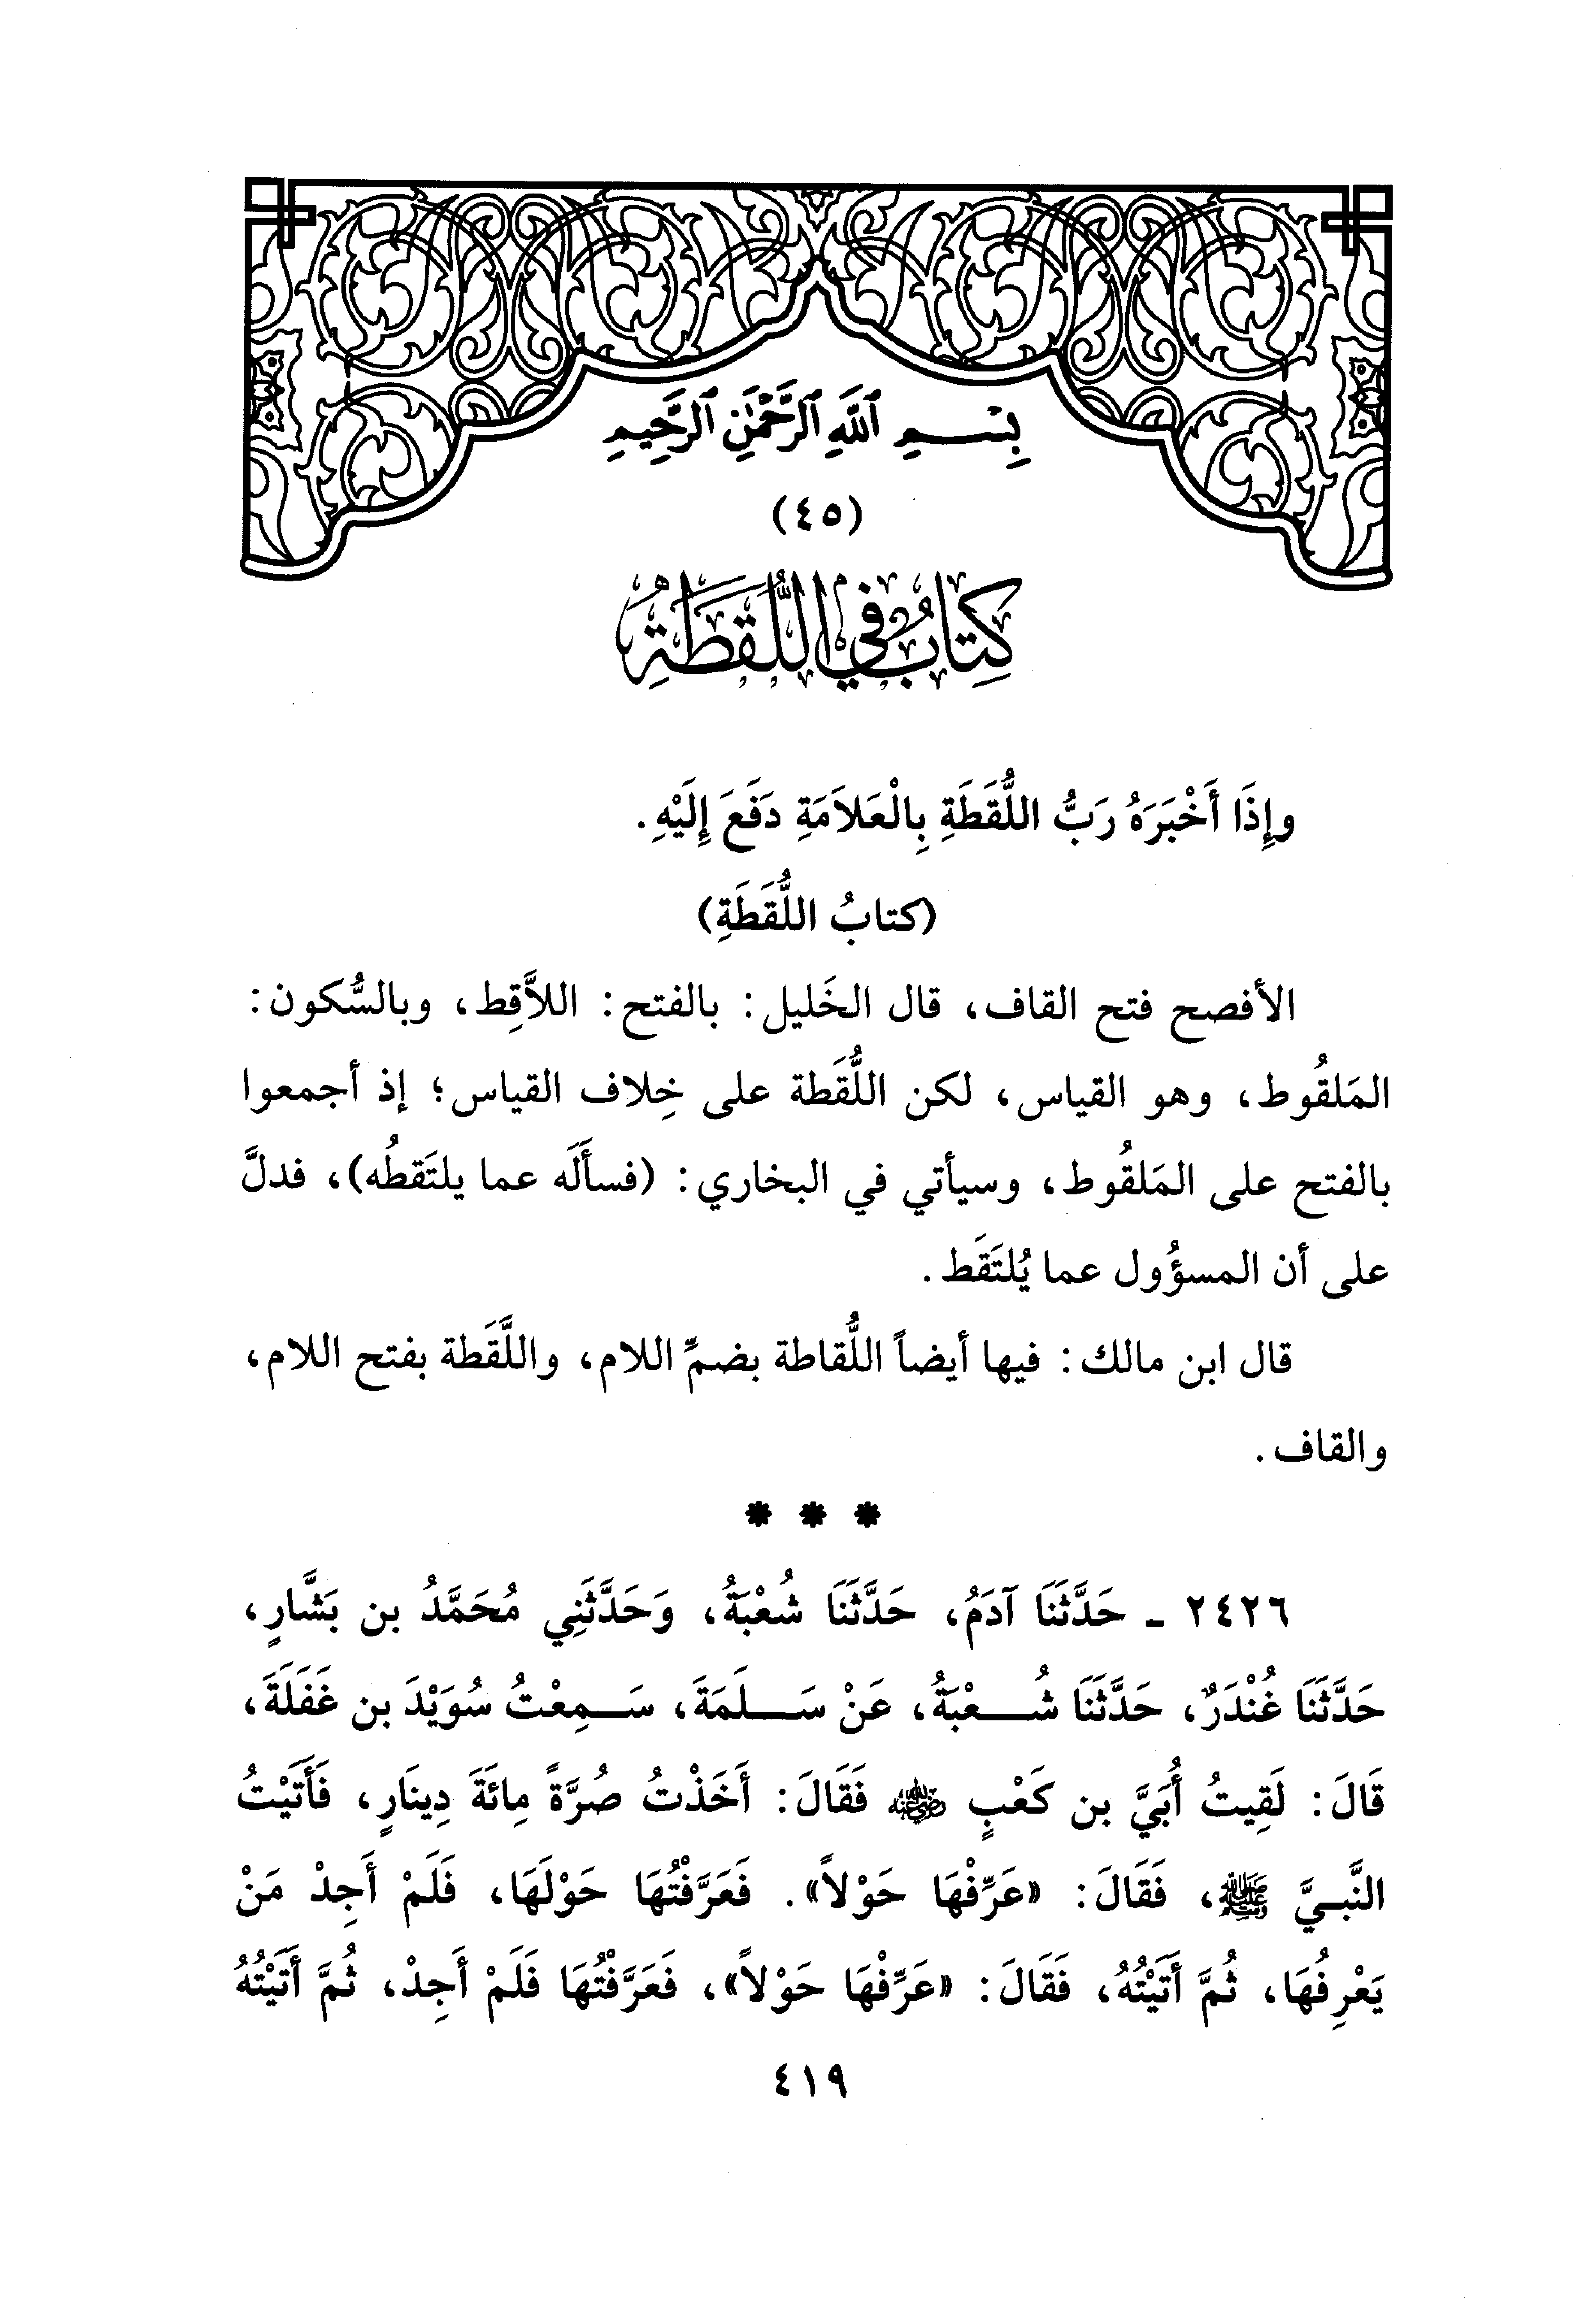 بِسْمِ ٱللَّهِ ٱلرَّحْمَٰنِ ٱلرَّحِيمِ
(٤٥)
كِتَابٌ فِي اللُّقَطَةِ
وإِذَا أَخْبَرَهُ رَبُّ اللُّقَطَةِ بِالْعَلاَمَةِ دَفَعَ إِلَيْهِ.
(كتابُ اللُّقَطَةِ)
الأفصح فتح القاف، قال الخَليل: بالفتح: اللاَّقِط، وبالسُّكون:
المَلقُوط، وهو القياس، لكن اللُّقَطة على خِلاف القياس؛ إذ أجمعوا
بالفتح على المَلقُوط، وسيأتي في البخاري: (فسأَلَه عما يلتَقطُه)، فدلَّ
على أن المسؤُول عما يُلتَقَط.
قال ابن مالك: فيها أيضاً اللُّقاطة بضمِّ اللام، واللَّقَطة بفتح اللام،
والقاف.
* * *
٢٤٢٦ ـ حَدَّثَنَا آدَمُ، حَدَّثَنَا شُعْبَةُ، وَحَدَّثَنِي مُحَمَّدُ بن بَشَّارٍ،
حَدَّثَنَا غُنْدَرٌ، حَدَّثَنَا شُعْبَةُ، عَنْ سَلَمَةَ، سَمِعْتُ سُوَيْدَ بن غَفَلَةَ،
قَالَ: لَقِيتُ أُبَيَّ بن كَعْبٍ رضي الله عنه فَقَالَ: أَخَذْتُ صُرَّةً مِائَةَ دِينَارٍ، فَأَتَيْتُ
النَّبِيَّ ﷺ، فَقَالَ: «عَرِّفْهَا حَوْلاً». فَعَرَّفْتُهَا حَوْلَهَا، فَلَمْ أَجِدْ مَنْ
يَعْرِفُهَا، ثُمَّ أَتَيْتُهُ، فَقَالَ: «عَرِّفْهَا حَوْلاً»، فَعَرَّفْتُهَا فَلَمْ أَجِدْ، ثُمَّ أَتَيْتُهُ
٤١٩